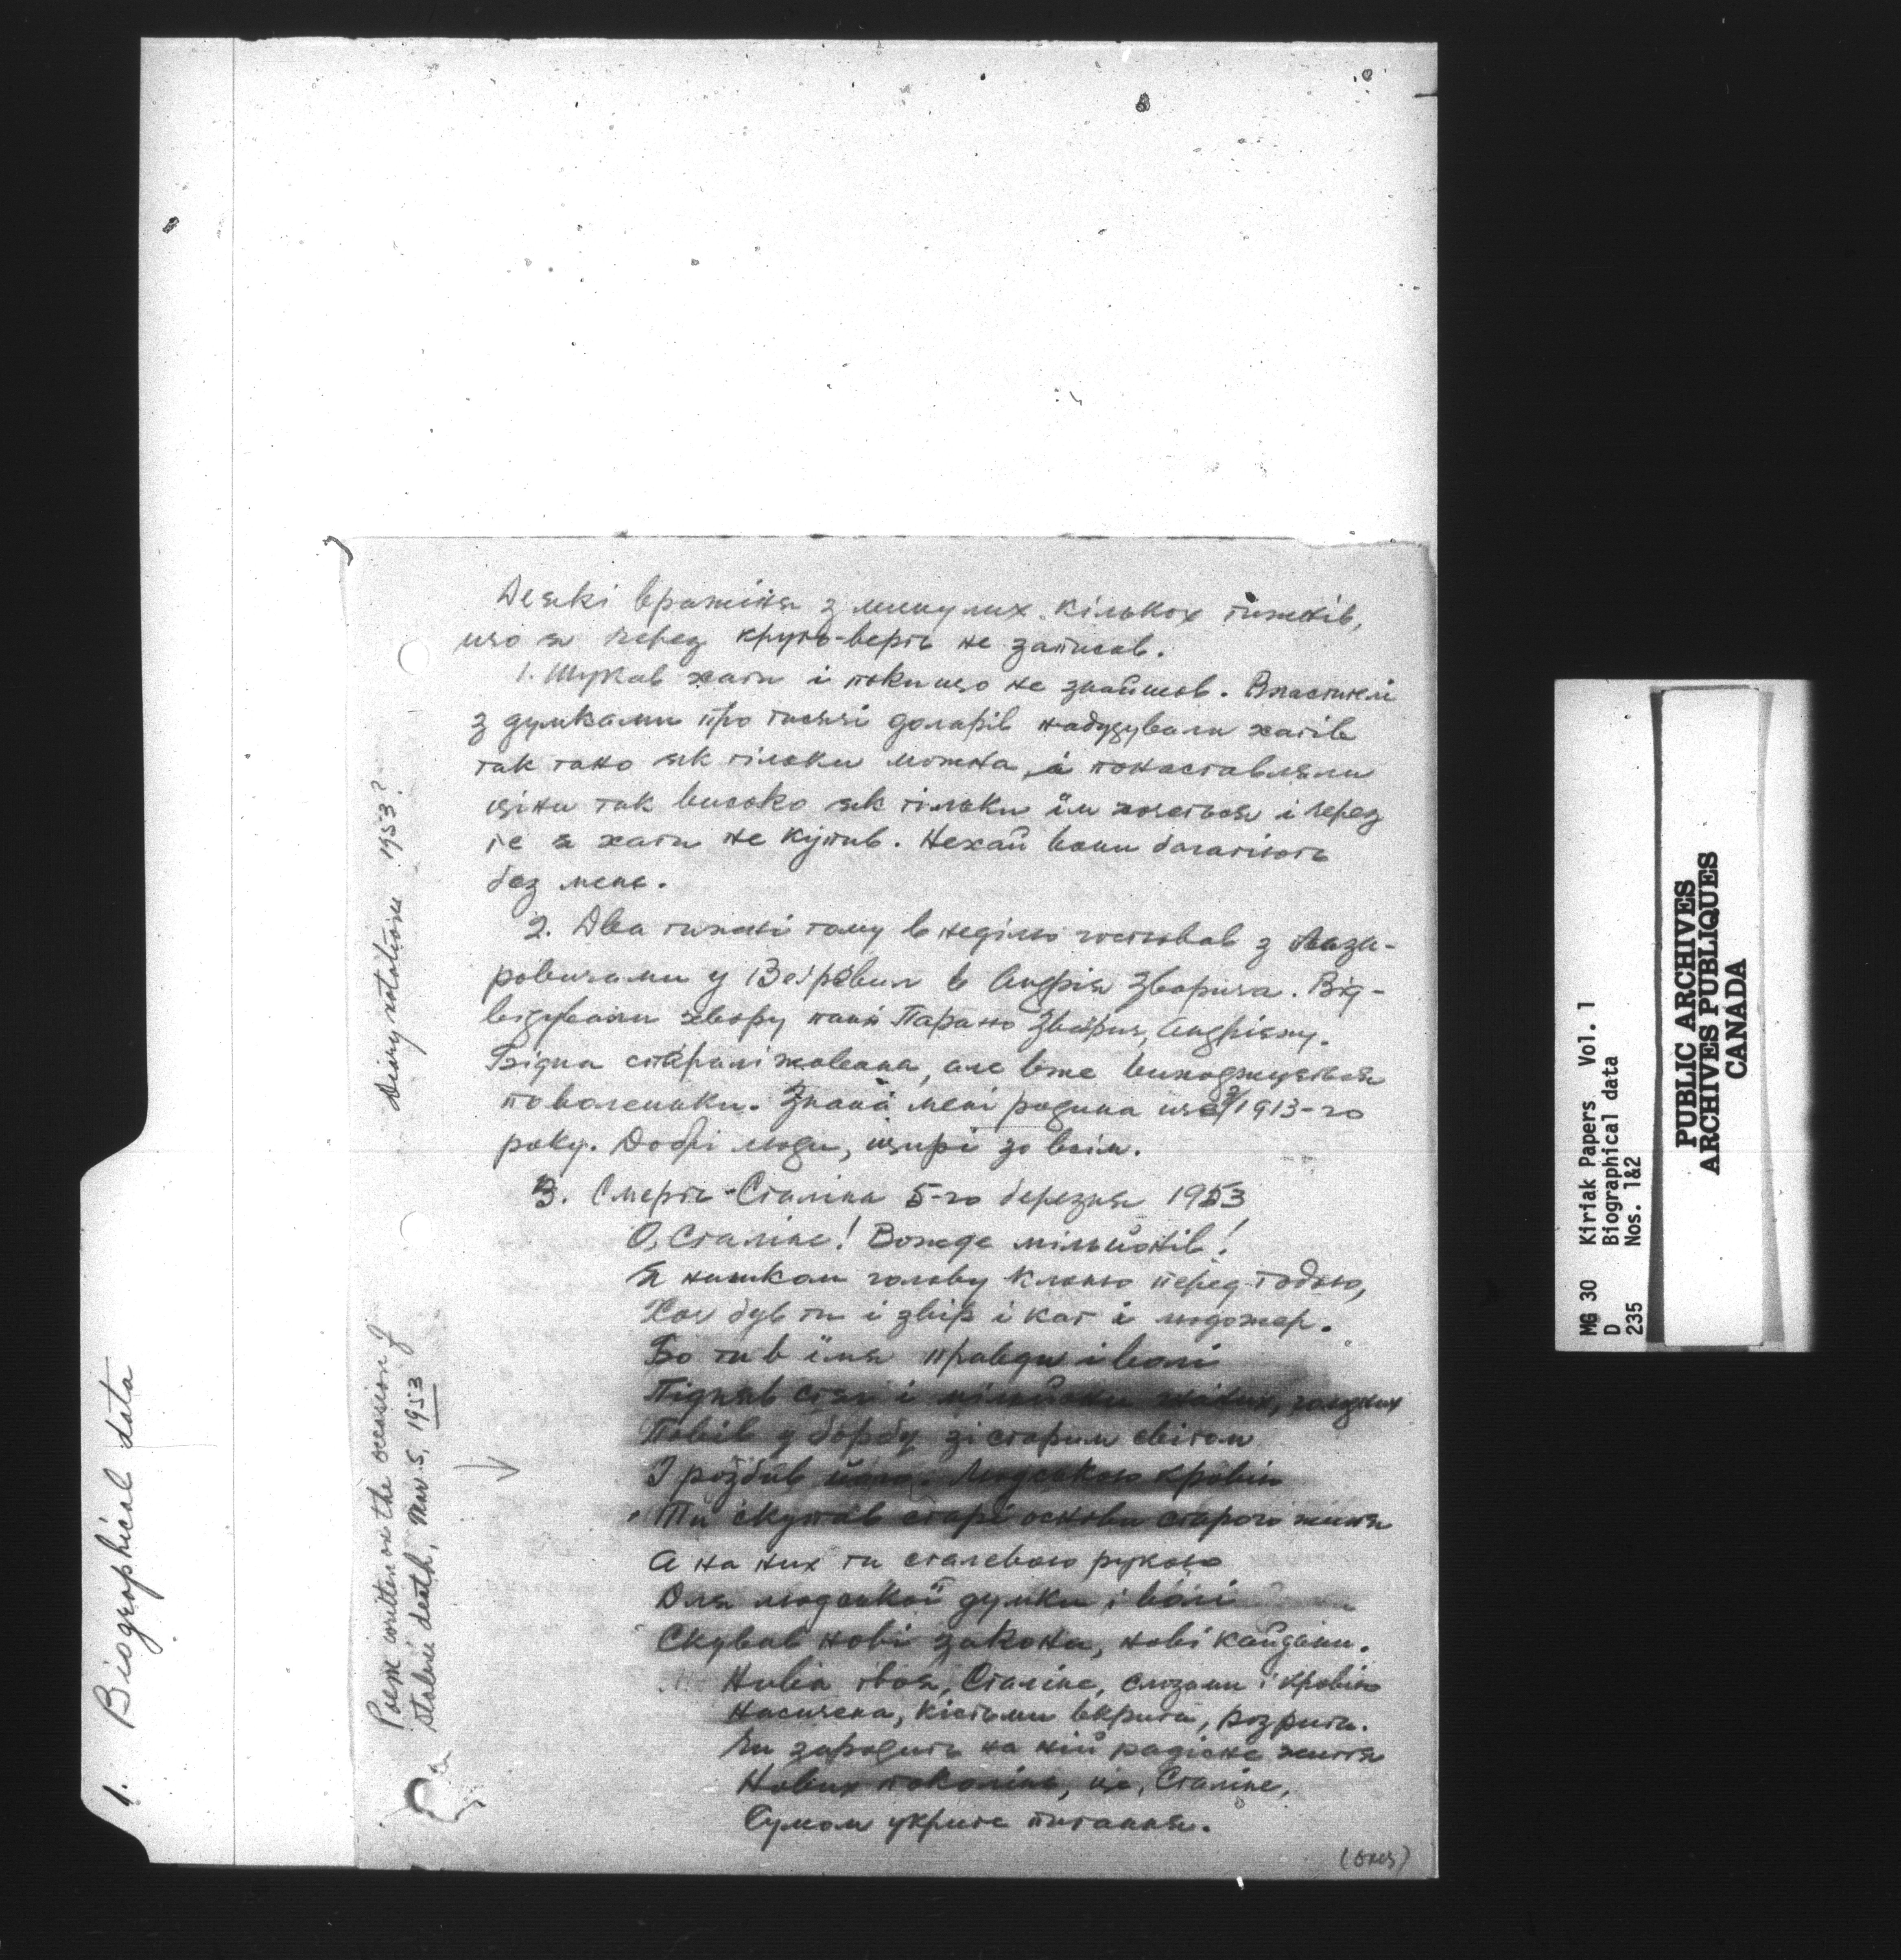 Деякі вражіня з минулих кількох тижнів,
що я через круть-верть не записав.
1. Шукав хати і покищо не знайшов. Властителі
з думками про тисячі доларів набудували хатів
так тано як тільки можна, і понаставляли
ціни так високо як тільки їм хочеться і через
те я хати не купив. Нехай вони багатіють
без мене.
2. Два тижні тому в неділю гостював з Лаза-
ровичами у Вегревил в Андрія Зварича. Від-
відували хвору пані Параню Зварич, Андріяжу.
Бідна спаралізована, але вже виходжується
поволеньки. Знана мені родина ще з 1913-го
року. Добрі люди, щирі зо всім.
3. Смерть Сталіна 5-го березня 1953
О, Сталіне! Вожде мільйонів!
Я нишком голову клоню перед тобою,
Хоч був ти і звір і кат і людожер.
Бо ти в імя правди і волі
Підняв стяг і мільйони голодних
Повів у борбу зі старим світом
І розбив його. Людською кровію
Ти скупав старі основи старого життя
А на них ти сталевою рукою
Для людської думки і волі
Скував нові закона, нові кайдани.
Нива твоя, Сталіне, слізами і кровію
Насичена, кістьми вкрита, розрита.
Чи зародить на ній радісне життя
Нових поколінь, це, Сталіне,
Сумом укрите питання.
(over)
Diary notations 1953?
Poem written on the occasion of
Stalin's death, Mar. 5, 1953
1. Biographical data
MG 30 Kiriak Papers Vol. 1
D Biographical data
235 Nos. 1&2
PUBLIC ARCHIVES
ARCHIVES PUBLIQUES
CANADA